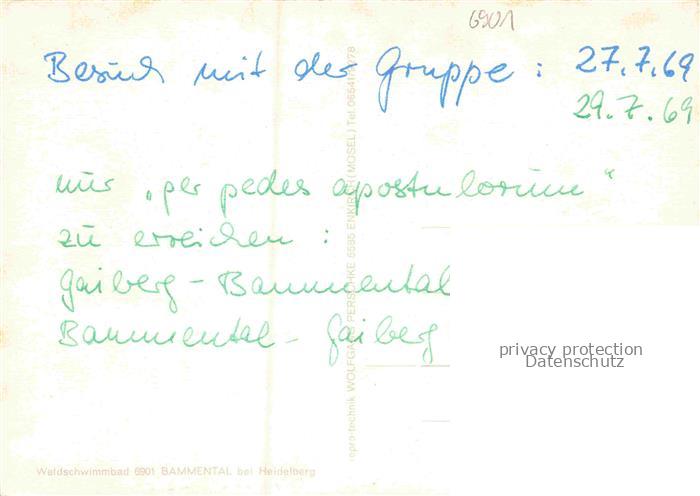 6901
Besuch mit der Gruppe : 27.7.69
29.7.69
nur „per pedes apostulorum“
zu erreichen :
Gaiberg - Bammental
Bammental - Gaiberg
privacy protection
Datenschutz
repro-technik WOLFGANG PERSCHKE 5585 ENKIRCH (MOSEL) Tel.
Waldschwimmbad 6901 BAMMENTAL bei Heidelberg